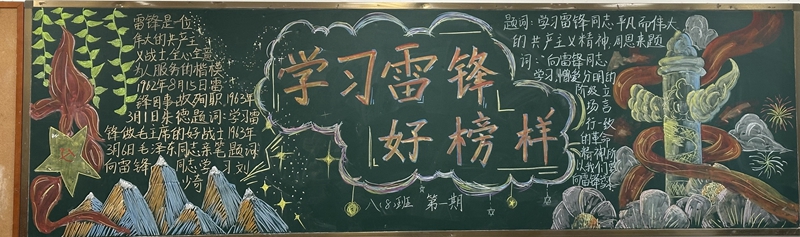 雷锋是一位
伟大的共产主
义战士全心全意
为人服务的楷模
1962年8月15日雷
锋因事故殉职1963年
3月1日朱德题词:学习雷
锋做毛主席的好战士1963年
3月6日毛泽东同志亲笔题词
向雷锋同志学习刘
少奇
学习雷锋
好榜样
八(8)班 第一期
题词:学习雷锋同志平凡而伟大
的共产主义精神周恩来题
词:向雷锋同志
学习憎爱分明的
阶级立
场言
行
的革命
精神
向雷锋